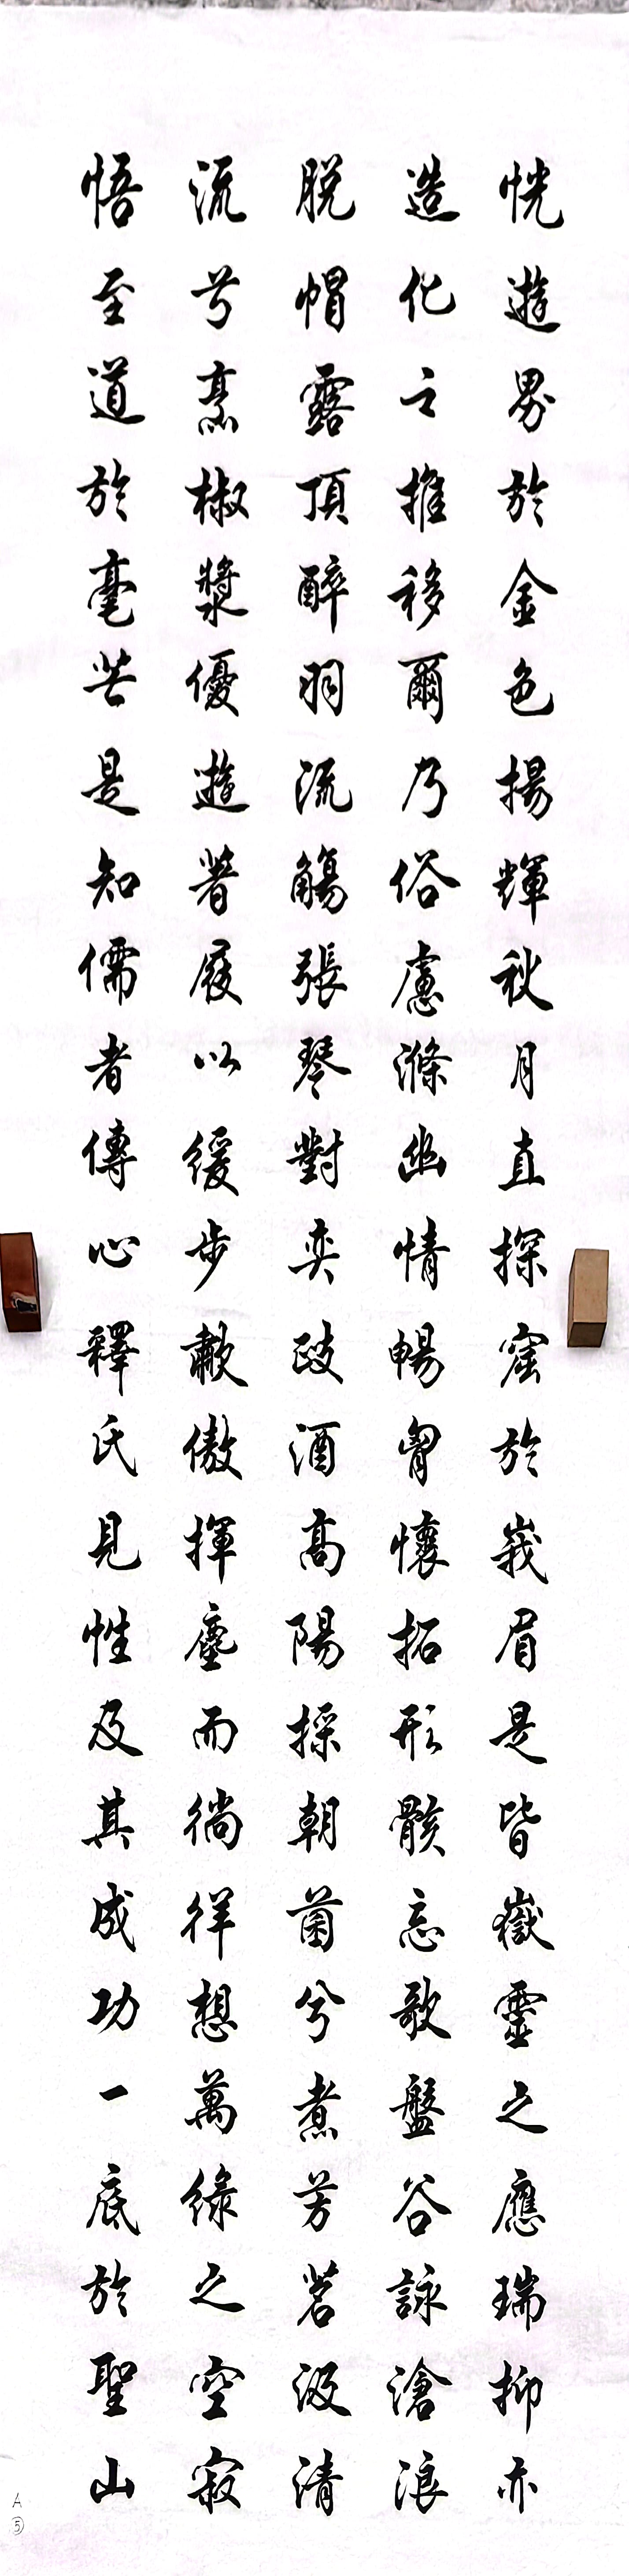 恍遊界於金色揚輝秋月直探窟於峩眉是皆嶽靈之應瑞抑亦
造化之推移爾乃俗慮滌幽情暢胷懷拓形骸忘歌盤谷詠滄浪
脱帽露頂醉羽流觴張琴對奕歧酒高陽採朝菌兮煮芳茗汲清
流兮烹椒漿優遊著屐以緩步歗傲揮麈而徜徉想萬緣之空寂
悟至道於毫芒是知儒者傳心釋氏見性及其成功一底於聖山
A
⑤